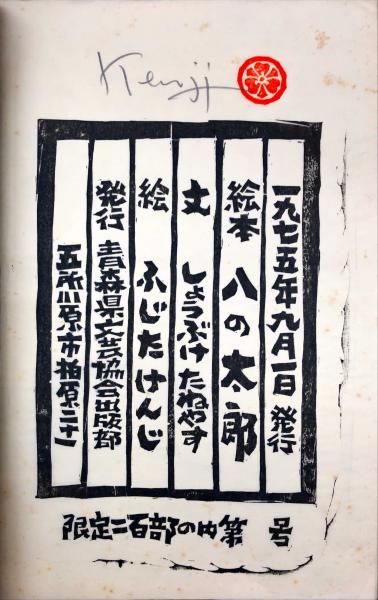 Kenji
一九七五年九月一日 発行
絵本 八の太郎
文 しょうぶけ たねやす
絵 ふじたけんじ
発行 青森県文芸協会出版部
五所川原市柏原二十一
限定二百部の内第 号